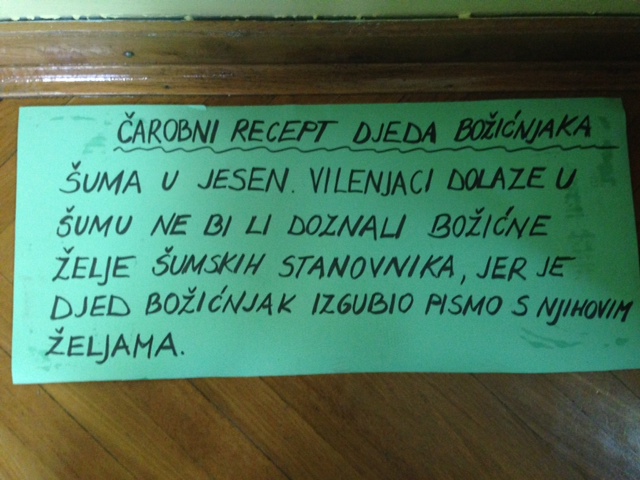 ČAROBNI RECEPT DJEDA BOŽIĆNJAKA
ŠUMA U JESEN. VILENJACI DOLAZE U
ŠUMU NE BI LI DOZNALI BOŽIĆNE
ŽELJE ŠUMSKIH STANOVNIKA, JER JE
DJED BOŽIĆNJAK IZGUBIO PISMO S NJIHOVIM
ŽELJAMA.